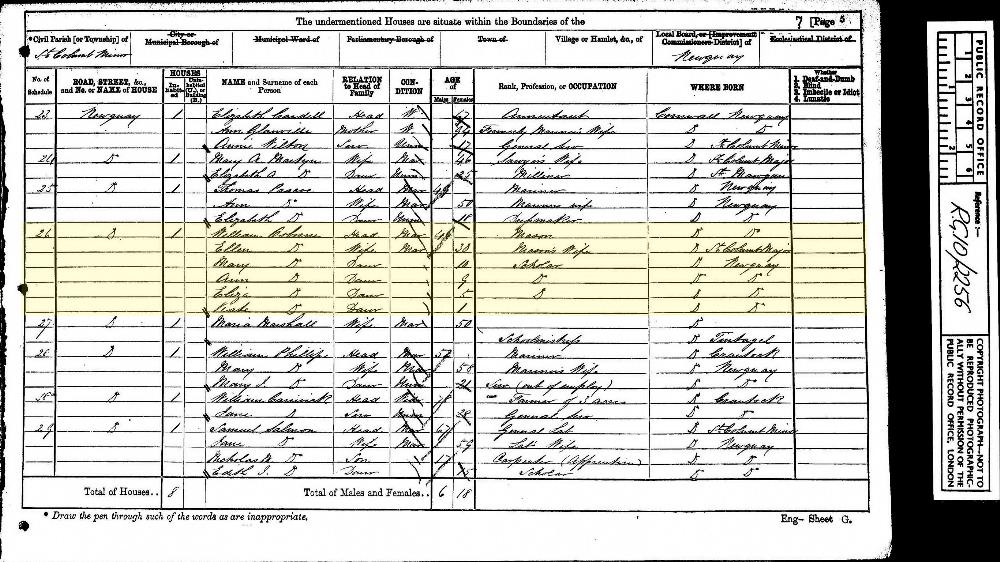 The undermentioned Houses are situate within the Boundaries of the
7 [Page 5
*Civil Parish [or Township] of
City or Municipal Borough of
Municipal Ward of
Parliamentary Borough of
Town of
Village or Hamlet, &c., of
Local Board, or [Improvement Commissioners District] of
Ecclesiastical District of
St Columb Minor
Newquay
No. of Schedule
ROAD, STREET, &c., and No. or NAME of HOUSE
HOUSES
Inhabited
Uninhabited (U.), or Building (B.)
NAME and Surname of each Person
RELATION to Head of Family
CONDITION
AGE of
Males
Females
Rank, Profession, or OCCUPATION
WHERE BORN
Whether
1. Deaf-and-Dumb
2. Blind
3. Imbecile or Idiot
4. Lunatic
23 Newquay 1 Elizabeth Head W Annuitant Cornwall Newquay
Ann Glanville Mother W. Formerly Mariner's Wife D D
Annie Wilton Serv 17 General Serv D St Columb Minor
24 D 1 Mary A. Martyn Wife Mar 46 Sawyer's Wife D St Columb Major
Elizabeth A. D Daur 25 Milliner D St Mawgan
25 D 1 Thomas Head Mar 49 Mariner D Newquay
Ann D Wife Mar 50 Mariners wife D Newquay
Elizabeth D Daur 18 D D
26 D 1 William Head Mar Mason D D
Ellen D Wife Mar 30 Mason's Wife D St Columb Major
Mary D Daur 10 Scholar D Newquay
Ann D Daur 9 D D D
Eliza D Daur 5 D D D
D Daur 1 D D
27 D 1 Maria Marshall Wife Mar 50 D
Schoolmistress D Tintagel
28 D 1 William Phillips Head Mar 57 Mariner D Crantock
Mary D Wife Mar 58 Mariner's Wife D Newquay
Mary J. D Daur 21 Serv (out of employ) D D
D 1 William Head Farmer of 3 acres D Crantock
Jane D Serv 28 General Serv D D
29 D 1 Samuel Salmon Head Mar 67 General Lab D St Columb Minor
Jane D Wife Mar 59 Lab Wife D Newquay
Nicholas D Son 17 Carpenter (Apprentice) D D
Edith J. D Daur 15 Scholar D D
Total of Houses.. 8
Total of Males and Females.. 6 18
* Draw the pen through such of the words as are inappropriate.
Eng- Sheet G.
PUBLIC RECORD OFFICE
1 2 3 4 5 6
Reference :-
RG10/2256
COPYRIGHT PHOTOGRAPH—NOT TO BE REPRODUCED PHOTOGRAPHICALLY WITHOUT PERMISSION OF THE PUBLIC RECORD OFFICE, LONDON